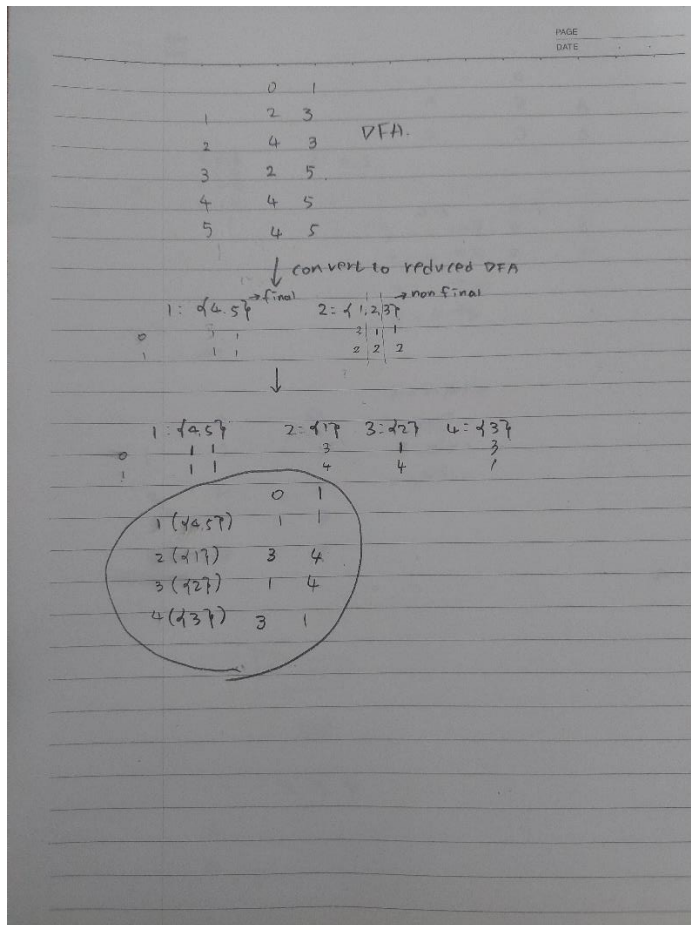 PAGE
DATE
0 1
1 2 3
2 4 3 DFA.
3 2 5
4 4 5
5 4 5
↓ convert to reduced DFA
1: {4.5} → final 2: {1,2,3} → non final
0 1 2 1 1
1 1 1 2 2 2
↓
1: {4,5} 2: {1} 3: {2} 4: {3}
0 1 1 3 1 3
1 1 1 4 4 1
0 1
1 ({4,5}) 1 1
2 ({1}) 3 4
3 ({2}) 1 4
4 ({3}) 3 1